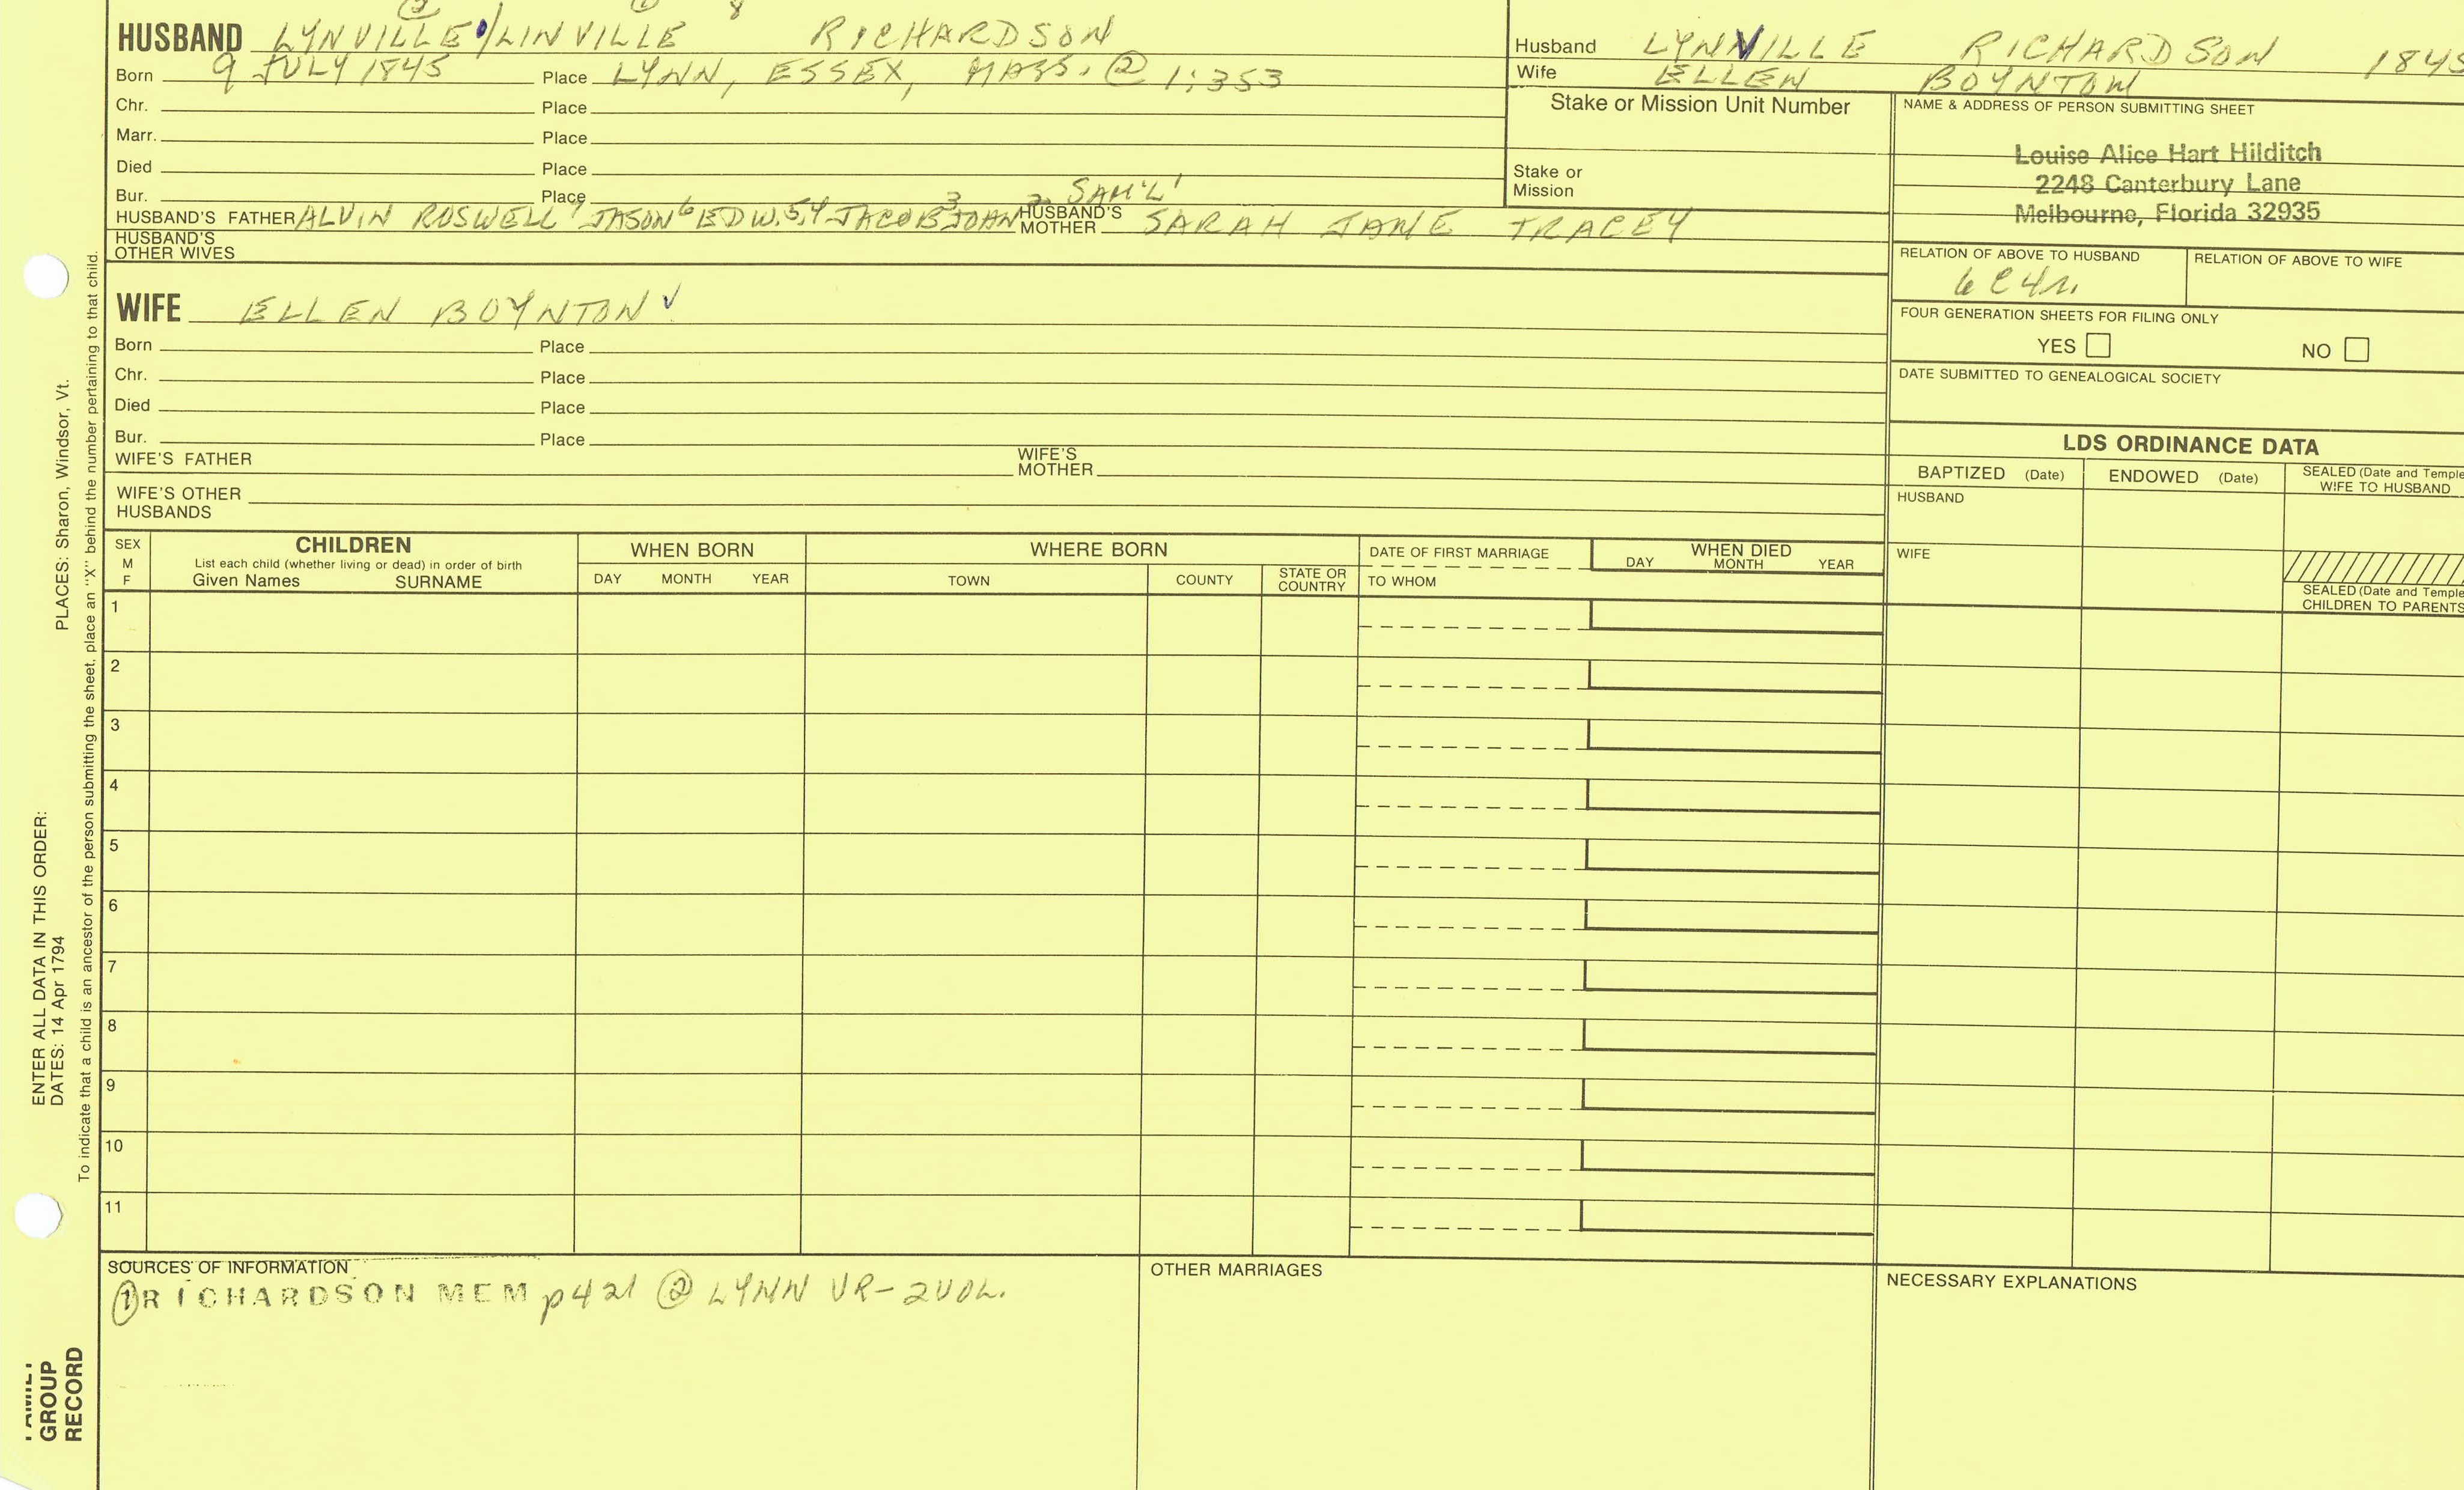 HUSBAND LYNVILLE/LINVILLE RICHARDSON 8
Born 9 JULY 1845 Place LYNN, ESSEX, MASS. ② 1:353
Chr. Place
Marr. Place
Died Place
Bur. Place
HUSBAND'S FATHER ALVIN ROSWELL 7 JASON 6 EDW. 5,4 JACOB 3 JOHN 2 SAM'L 1 HUSBAND'S MOTHER SARAH JANE TRACEY
HUSBAND'S OTHER WIVES
WIFE ELLEN BOYNTON ✓
Born Place
Chr. Place
Died Place
Bur. Place
WIFE'S FATHER WIFE'S MOTHER
WIFE'S OTHER HUSBANDS
Husband LYNNVILLE RICHARDSON 1845
Wife ELLEN BOYNTON
Stake or Mission Unit Number
Stake or Mission
NAME & ADDRESS OF PERSON SUBMITTING SHEET
Louise Alice Hart Hilditch
2248 Canterbury Lane
Melbourne, Florida 32935
RELATION OF ABOVE TO HUSBAND RELATION OF ABOVE TO WIFE
6C4r.
FOUR GENERATION SHEETS FOR FILING ONLY
YES NO
DATE SUBMITTED TO GENEALOGICAL SOCIETY
LDS ORDINANCE DATA
BAPTIZED (Date) ENDOWED (Date) SEALED (Date and Temple
WIFE TO HUSBAND
HUSBAND
WIFE
SEALED (Date and Temple
CHILDREN TO PARENTS
SEX M F
CHILDREN
List each child (whether living or dead) in order of birth
Given Names SURNAME
WHEN BORN
DAY MONTH YEAR
WHERE BORN
TOWN COUNTY STATE OR COUNTRY
DATE OF FIRST MARRIAGE
TO WHOM
WHEN DIED
DAY MONTH YEAR
1
2
3
4
5
6
7
8
9
10
11
SOURCES OF INFORMATION
① RICHARDSON MEM p421 ② LYNN VR-2VOL.
OTHER MARRIAGES
NECESSARY EXPLANATIONS
PLACES: Sharon, Windsor, Vt.
ENTER ALL DATA IN THIS ORDER:
DATES: 14 Apr 1794
To indicate that a child is an ancestor of the person submitting the sheet, place an "X" behind the number pertaining to that child.
FAMILY
GROUP
RECORD